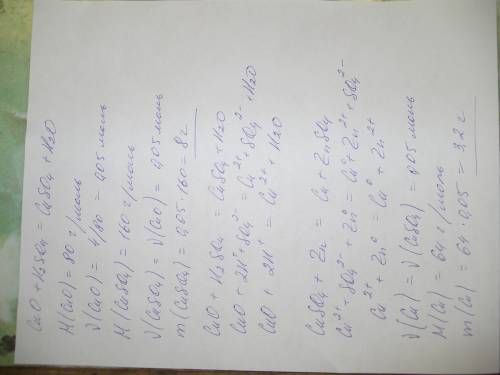 CuO + H₂SO₄ = CuSO₄ + H₂O
M(CuO) = 80 г/моль
ν(CuO) = 4/80 = 0,05 моль
M(CuSO₄) = 160 г/моль
ν(CuSO₄) = ν(CuO) = 0,05 моль
m(CuSO₄) = 0,05·160 = 8 г
CuO + H₂SO₄ = CuSO₄ + H₂O
CuO + 2H⁺ + SO₄²⁻ = Cu²⁺ + SO₄²⁻ + H₂O
CuO + 2H⁺ = Cu²⁺ + H₂O
CuSO₄ + Zn = Cu + ZnSO₄
Cu²⁺ + SO₄²⁻ + Zn⁰ = Cu⁰ + Zn²⁺ + SO₄²⁻
Cu²⁺ + Zn⁰ = Cu⁰ + Zn²⁺
ν(Cu) = ν(CuSO₄) = 0,05 моль
M(Cu) = 64 г/моль
m(Cu) = 64·0,05 = 3,2 г